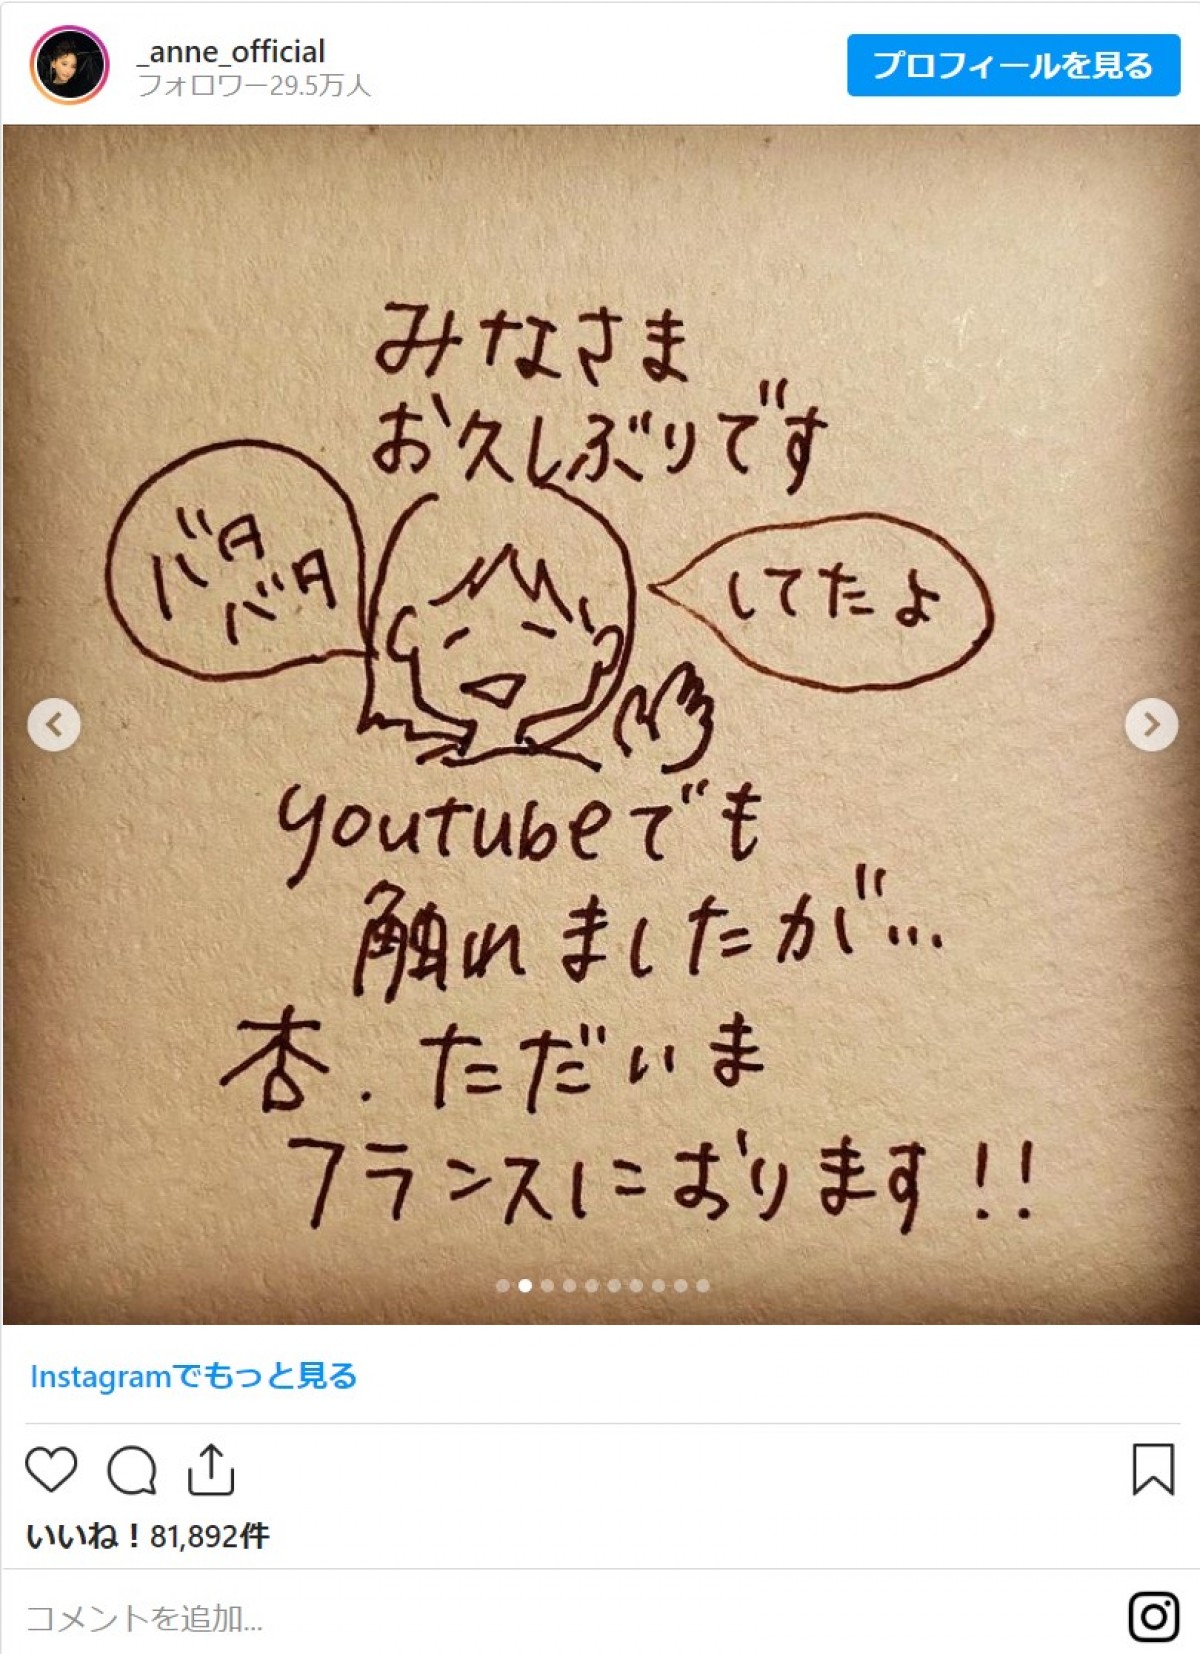 _anne_official
フォロワー29.5万人
プロフィールを見る
みなさま
お久しぶりです
バタ
バタ
してたよ
youtubeでも
触れましたが…
杏.ただいま
フランスにおります!!
Instagramでもっと見る
いいね！81,892件
コメントを追加...